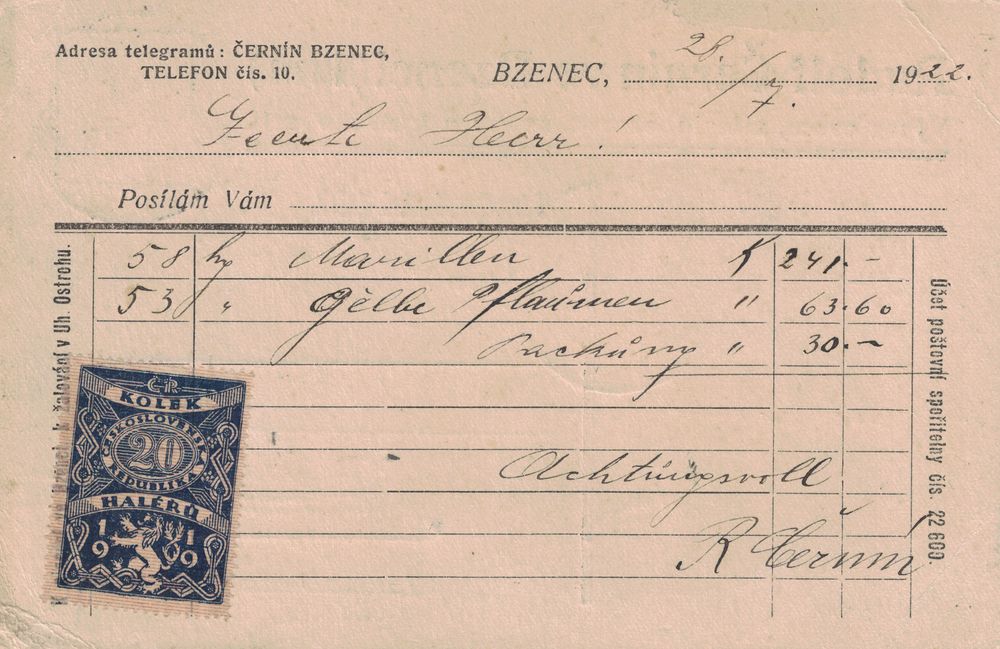 Adresa telegramů: ČERNÍN BZENEC,
TELEFON čís. 10.
BZENEC, 28./7. 1922.
Herr!
Posílám Vám
58 kg Marillen K 241.-
53 " Gelbe Pflaumen " 63.60
Packung " 30.-
Achtungsvoll
R Černín
žalování v Uh. Ostrohu.
Účet poštovní spořitelny čís. 22 600.
ČR
KOLEK
ČESKOSLOVENSKÁ
20
REPUBLIKA
HALÉŘŮ
1919